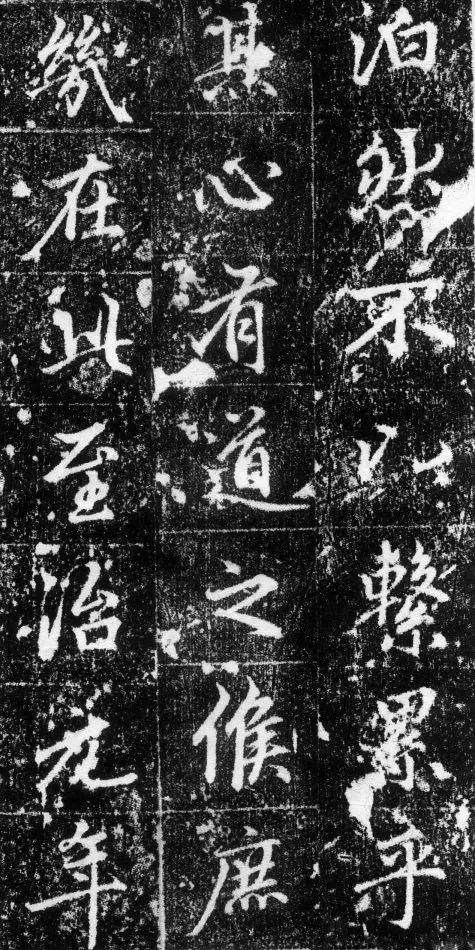 泊然不以繫累乎
其心有道之候庶
幾在此至治元年